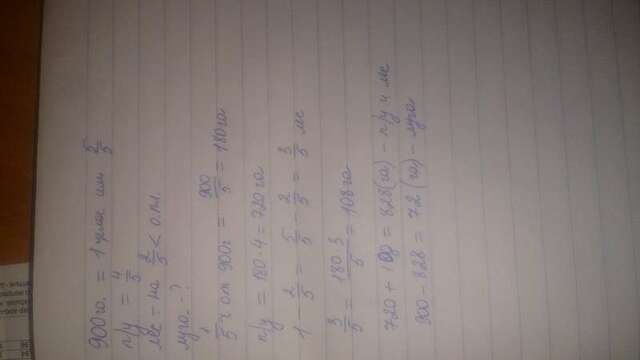 900га. = 1 целая или 5/5
п/у = 4/5
лес - на 2/5 < о.пл.
луга - ?
1/5 ч от 900г = 900/5 = 180га
п/у = 180·4 = 720 га
1 - 2/5 = 5/5 - 2/5 = 3/5 лес
3/5 = 180·3/5 = 108га
720 + 108 = 828(га) - п/у и лес
900 - 828 = 72 (га) - луга